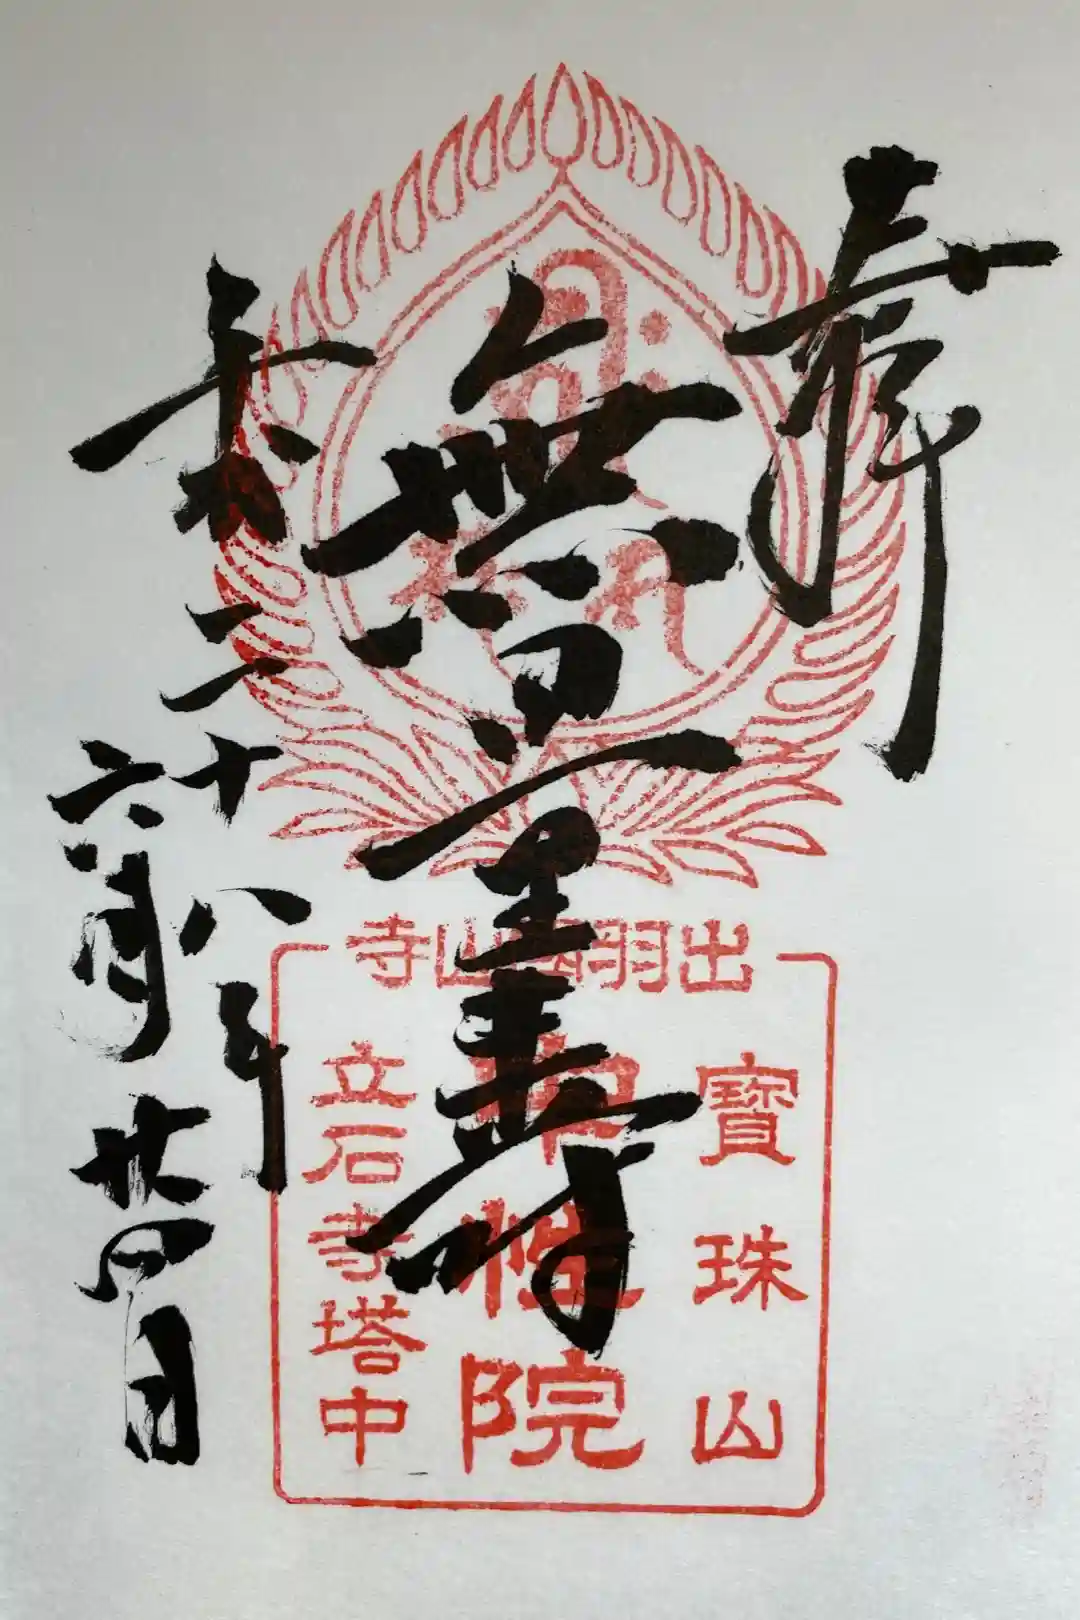 奉拝
無量壽
二十八年
六月廿四日
出羽 山寺
寶珠山
中性院
立石寺塔中